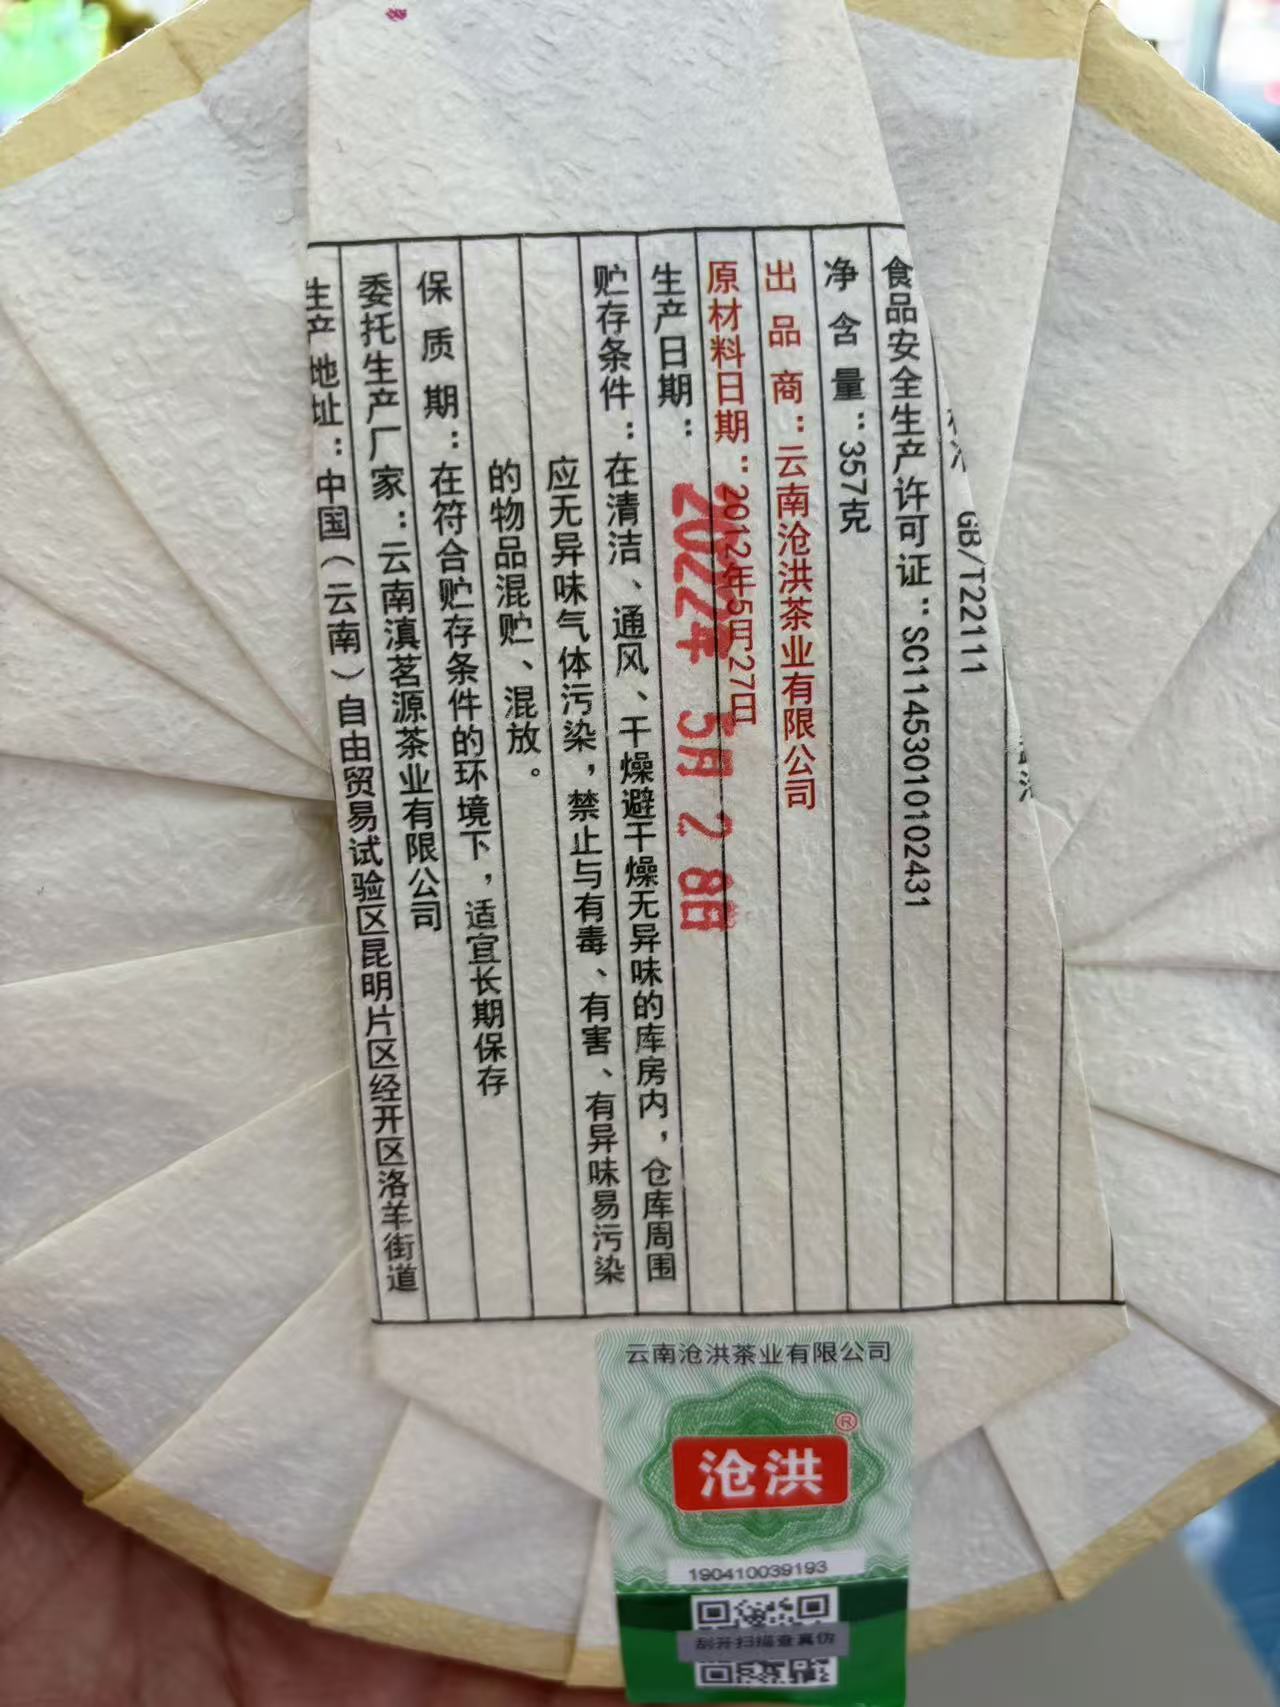 GB/T22111
食品安全生产许可证：SC11453010102431
净含量：357克
出品商：云南沧洪茶业有限公司
原材料日期：2012年5月27日
生产日期：2022年 5月 28日
贮存条件：在清洁、通风、干燥避干燥无异味的库房内，仓库周围
应无异味气体污染，禁止与有毒、有害、有异味易污染
的物品混贮、混放。
保质期：在符合贮存条件的环境下，适宜长期保存
委托生产厂家：云南滇茗源茶业有限公司
生产地址：中国（云南）自由贸易试验区昆明片区经开区洛羊街道
云南沧洪茶业有限公司
沧洪®
190410039193
刮开扫描查真伪